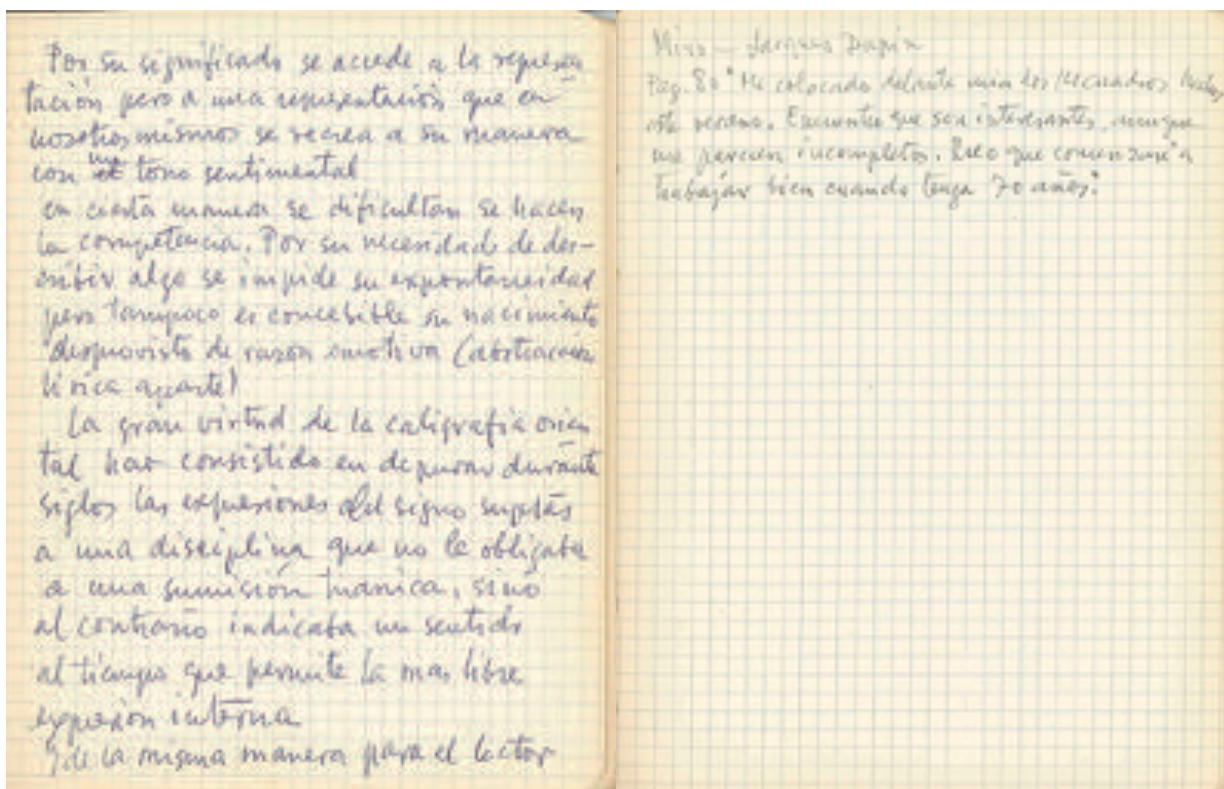 Por su significado se accede a la represen
tación pero a una representación que en
nosotros mismos se recrea a su manera
con un tono sentimental
en cierta manera se dificultan se hacen
la competencia. Por su necesidad de des-
cribir algo se impide su expontaneidad
pero tampoco es concebible su nacimiento
desprovisto de razón emotiva (abstracción
lírica aparte)
La gran virtud de la caligrafía orien
tal har consistido en depurar durante
siglos las expresiones del signo sujetas
a una disciplina que no le obligaba
a una sumisión, sino
al contrario indicaba un sentido
al tiempo que permite la mas libre
expresión interna
Y de la misma manera para el lector
Miro — Jacques Dupin
Pag. 80 "He colocado delante mia los cuadros
este verano. Encuentro que son interesantes, aunque
me parecen incompletos. Creo que comenzaré a
trabajar bien cuando tenga 70 años."